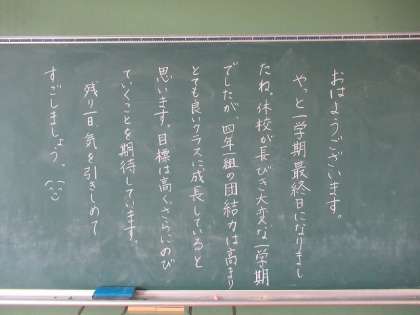 おはようございます。
やっと一学期最終日になりまし
たね。休校が長びき大変な一学期
でしたが、四年一組の団結力は高まり
とても良いクラスに成長していると
思います。目標は高く、さらにのび
ていくことを期待しています。
残り一日気を引きしめて
すごしましょう。